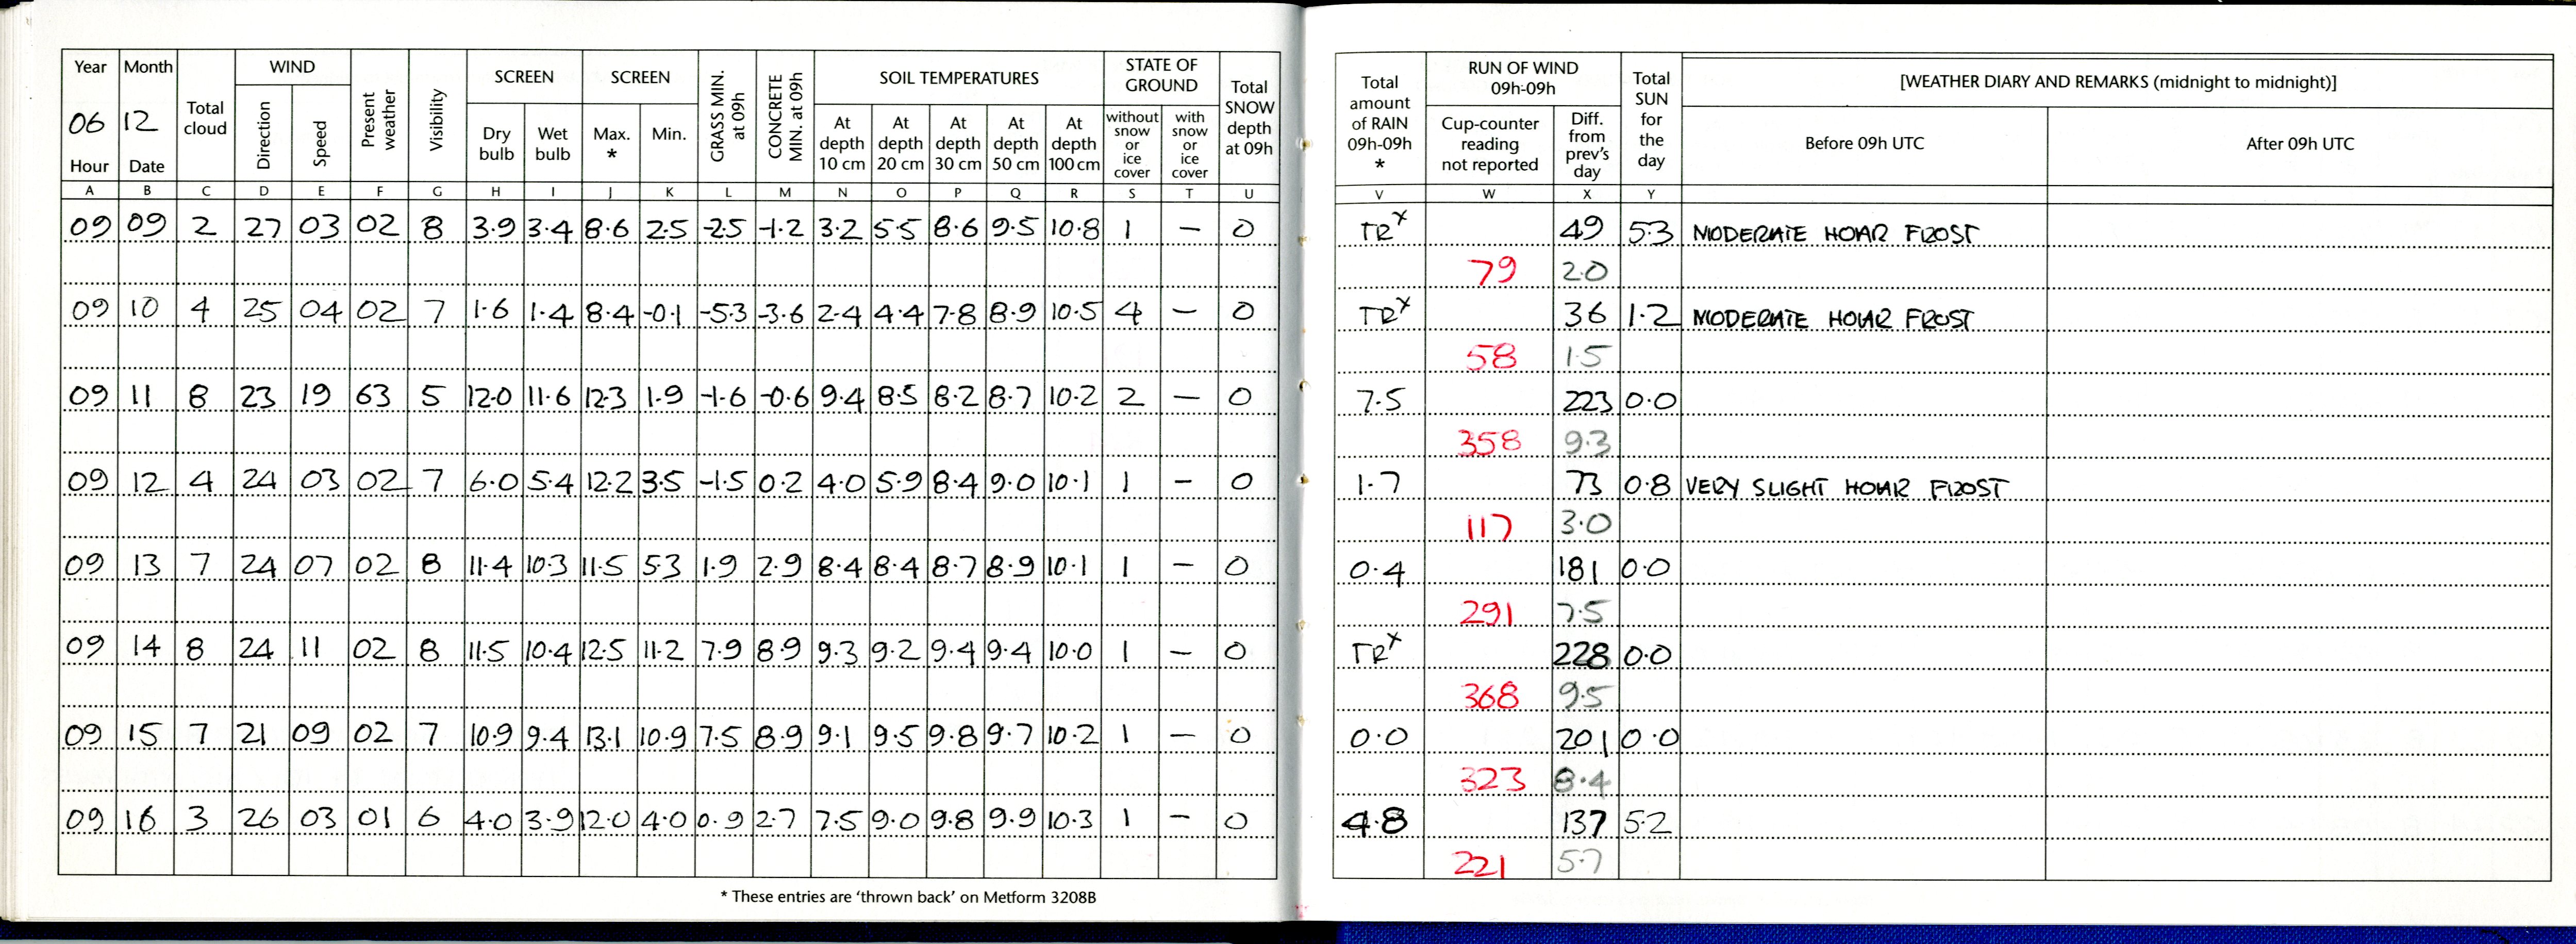 Year Month Total cloud WIND Present weather Visibility SCREEN SCREEN GRASS MIN. at 09h CONCRETE MIN. at 09h SOIL TEMPERATURES STATE OF GROUND Total SNOW depth at 09h
06 12 Direction Speed Dry bulb Wet bulb Max. * Min. At depth 10 cm At depth 20 cm At depth 30 cm At depth 50 cm At depth 100 cm without snow or ice cover with snow or ice cover
Hour Date
A B C D E F G H I J K L M N O P Q R S T U
09 09 2 27 03 02 8 3.9 3.4 8.6 2.5 -2.5 -1.2 3.2 5.5 8.6 9.5 10.8 1 — 0
09 10 4 25 04 02 7 1.6 1.4 8.4 -0.1 -5.3 -3.6 2.4 4.4 7.8 8.9 10.5 4 — 0
09 11 8 23 19 63 5 12.0 11.6 12.3 1.9 -1.6 -0.6 9.4 8.5 8.2 8.7 10.2 2 — 0
09 12 4 24 03 02 7 6.0 5.4 12.2 3.5 -1.5 0.2 4.0 5.9 8.4 9.0 10.1 1 — 0
09 13 7 24 07 02 8 11.4 10.3 11.5 5.3 1.9 2.9 8.4 8.4 8.7 8.9 10.1 1 — 0
09 14 8 24 11 02 8 11.5 10.4 12.5 11.2 7.9 8.9 9.3 9.2 9.4 9.4 10.0 1 — 0
09 15 7 21 09 02 7 10.9 9.4 13.1 10.9 7.5 8.9 9.1 9.5 9.8 9.7 10.2 1 — 0
09 16 3 26 03 01 6 4.0 3.9 12.0 4.0 0.9 2.7 7.5 9.0 9.8 9.9 10.3 1 — 0
* These entries are 'thrown back' on Metform 3208B
Total amount of RAIN 09h-09h * RUN OF WIND 09h-09h Total SUN for the day [WEATHER DIARY AND REMARKS (midnight to midnight)]
Cup-counter reading not reported Diff. from prev's day Before 09h UTC After 09h UTC
V W X Y
TRx 49 5.3 MODERATE HOAR FROST
79 2.0
TRx 36 1.2 MODERATE HOAR FROST
58 1.5
7.5 223 0.0
358 9.3
1.7 73 0.8 VERY SLIGHT HOAR FROST
117 3.0
0.4 181 0.0
291 7.5
TRx 228 0.0
368 9.5
0.0 201 0.0
323 8.4
4.8 137 5.2
221 5.7